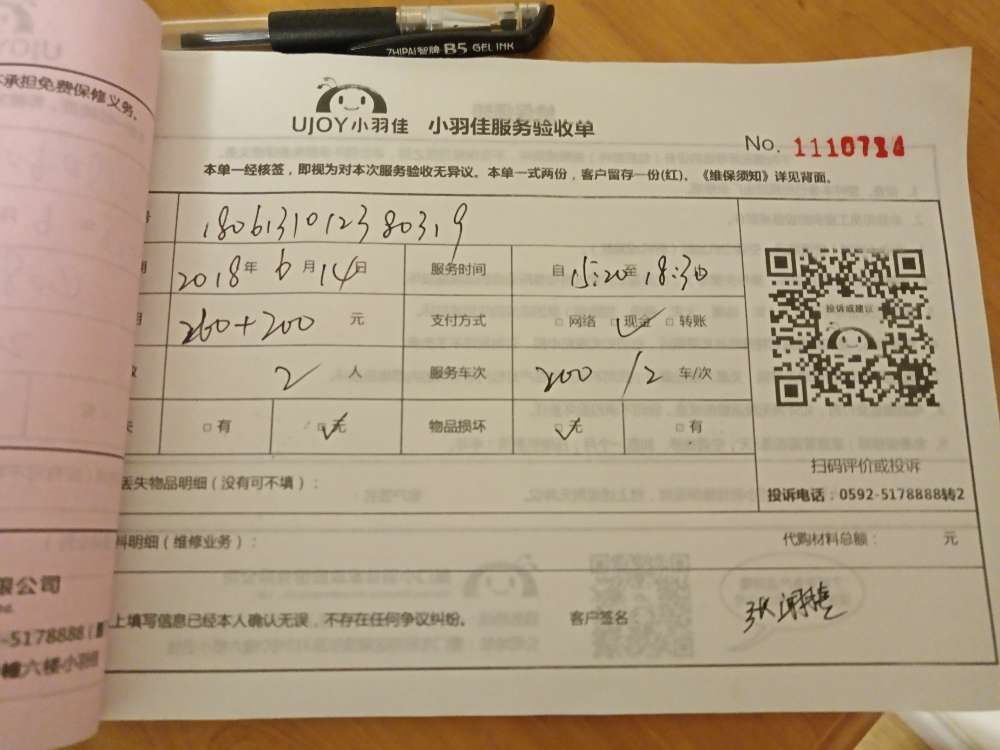 ZHIPAI智牌 B5 GEL INK
承担免费保修义务。
UJOY小羽佳 小羽佳服务验收单
No. 1110714
本单一经核签，即视为对本次服务验收无异议。本单一式两份，客户留存一份(红)、《维保须知》详见背面。
号 18061310123803,9
2018年6月14日 服务时间 自15:20至18:30
260+200 元 支付方式 □网络 □现金 □转账
2人 服务车次 200/2车/次
□有 □无 物品损坏 □无 □有
投诉或建议
扫码评价或投诉
投诉电话：0592-5178888转2
丢失物品明细（没有可不填）：
料明细（维修业务）： 代购材料总额： 元
上填写信息已经本人确认无误，不存在任何争议纠纷。 客户签名
限公司
-5178888
幢六楼小羽佳